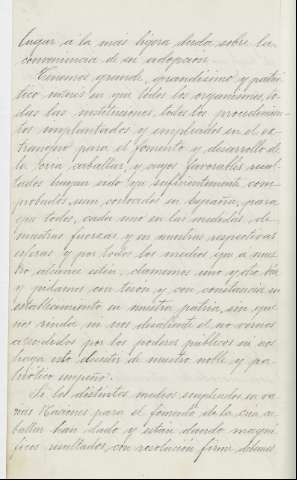 lugar á la más ligera duda sobre la
conveniencia de su adopción.
Tenemos grande, grandísimo y patrió
tico interés en que todos los organismos, to-
das las instituciones, todos los procedimien-
tos implantados y empleados en el ex-
tranjero para el fomento y desarrollo de
la cría caballar, y cuyos favorables resul-
tados hayan sido ya suficientemente com-
probados sean conocidos en España, para
que todos, cada uno en la medida de
nuestras fuerzas y en nuestras respectivas
esferas y por todos los medios que á nues-
tro alcance estén, clamemos uno y otro día
y pidamos con tesón y con constancia su
establecimiento en nuestra patria, sin que
nos rinda, ni nos desaliente el no vernos
atendidos por los poderes públicos ni nos
haga esto desistir de nuestro noble y pa-
triótico empeño.
Si los distintos medios empleados en va-
rias Naciones para el fomento de la cría ca-
ballar han dado y están dando magní-
ficos resultados, con resolución firme debemos